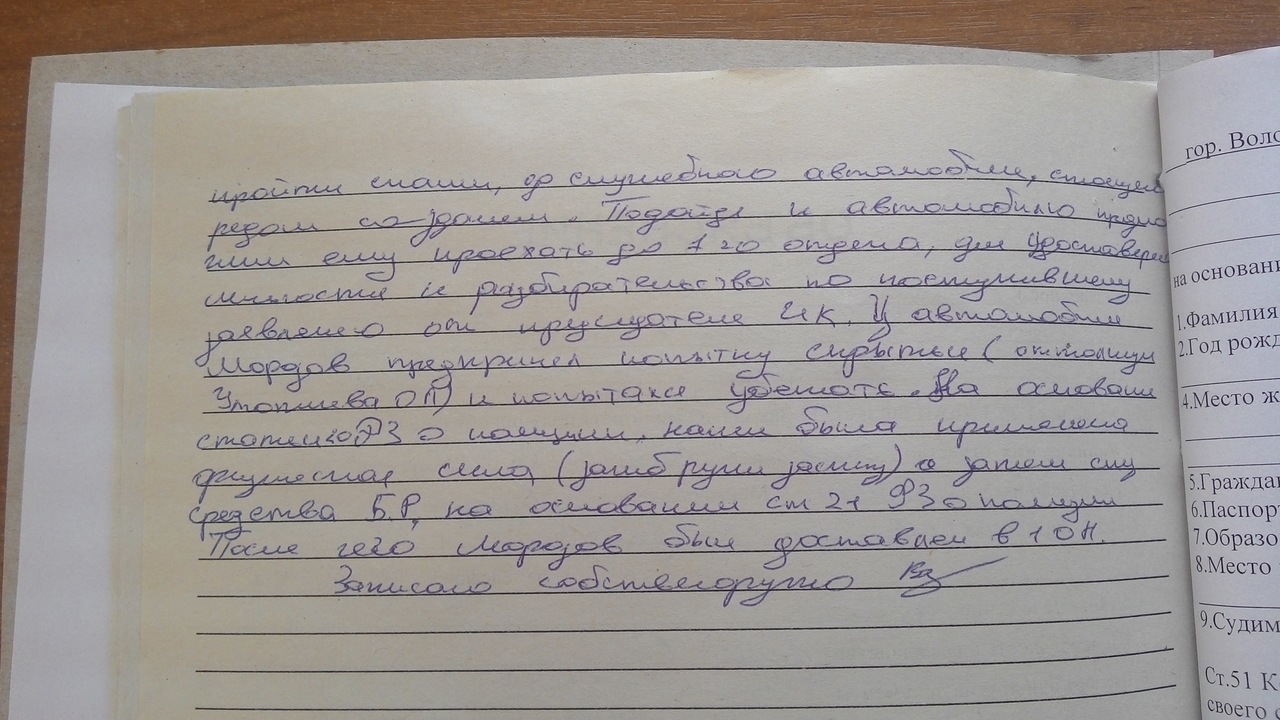 пройти с нами, до служебного автомобиля, стоящего
рядом со зданием. Подойдя к автомобилю предло
жили ему проехать до 1 го отдела, для удостоверен
личности и разбирательства по поступившему
заявлению от председателя УК. У автомобиля
Морозов предпринял попытку скрыться (оттолкнул
ОП) и попытался убежать. На основани
статьи 20 ФЗ о полиции, нами была применена
физическая сила, (загиб руки за спину) а затем спец
средства Б.Р, на основании ст 21 ФЗ о полиции
После чего Морозов был доставлен в 1 ОП.
Записано собственоручно
гор. Воло
на основани
1.Фамилия
2.Год рожд
4.Место ж
5.Граждан
6.Паспорт
7.Образо
8.Место
9.Судим
Ст.51 К
своего с